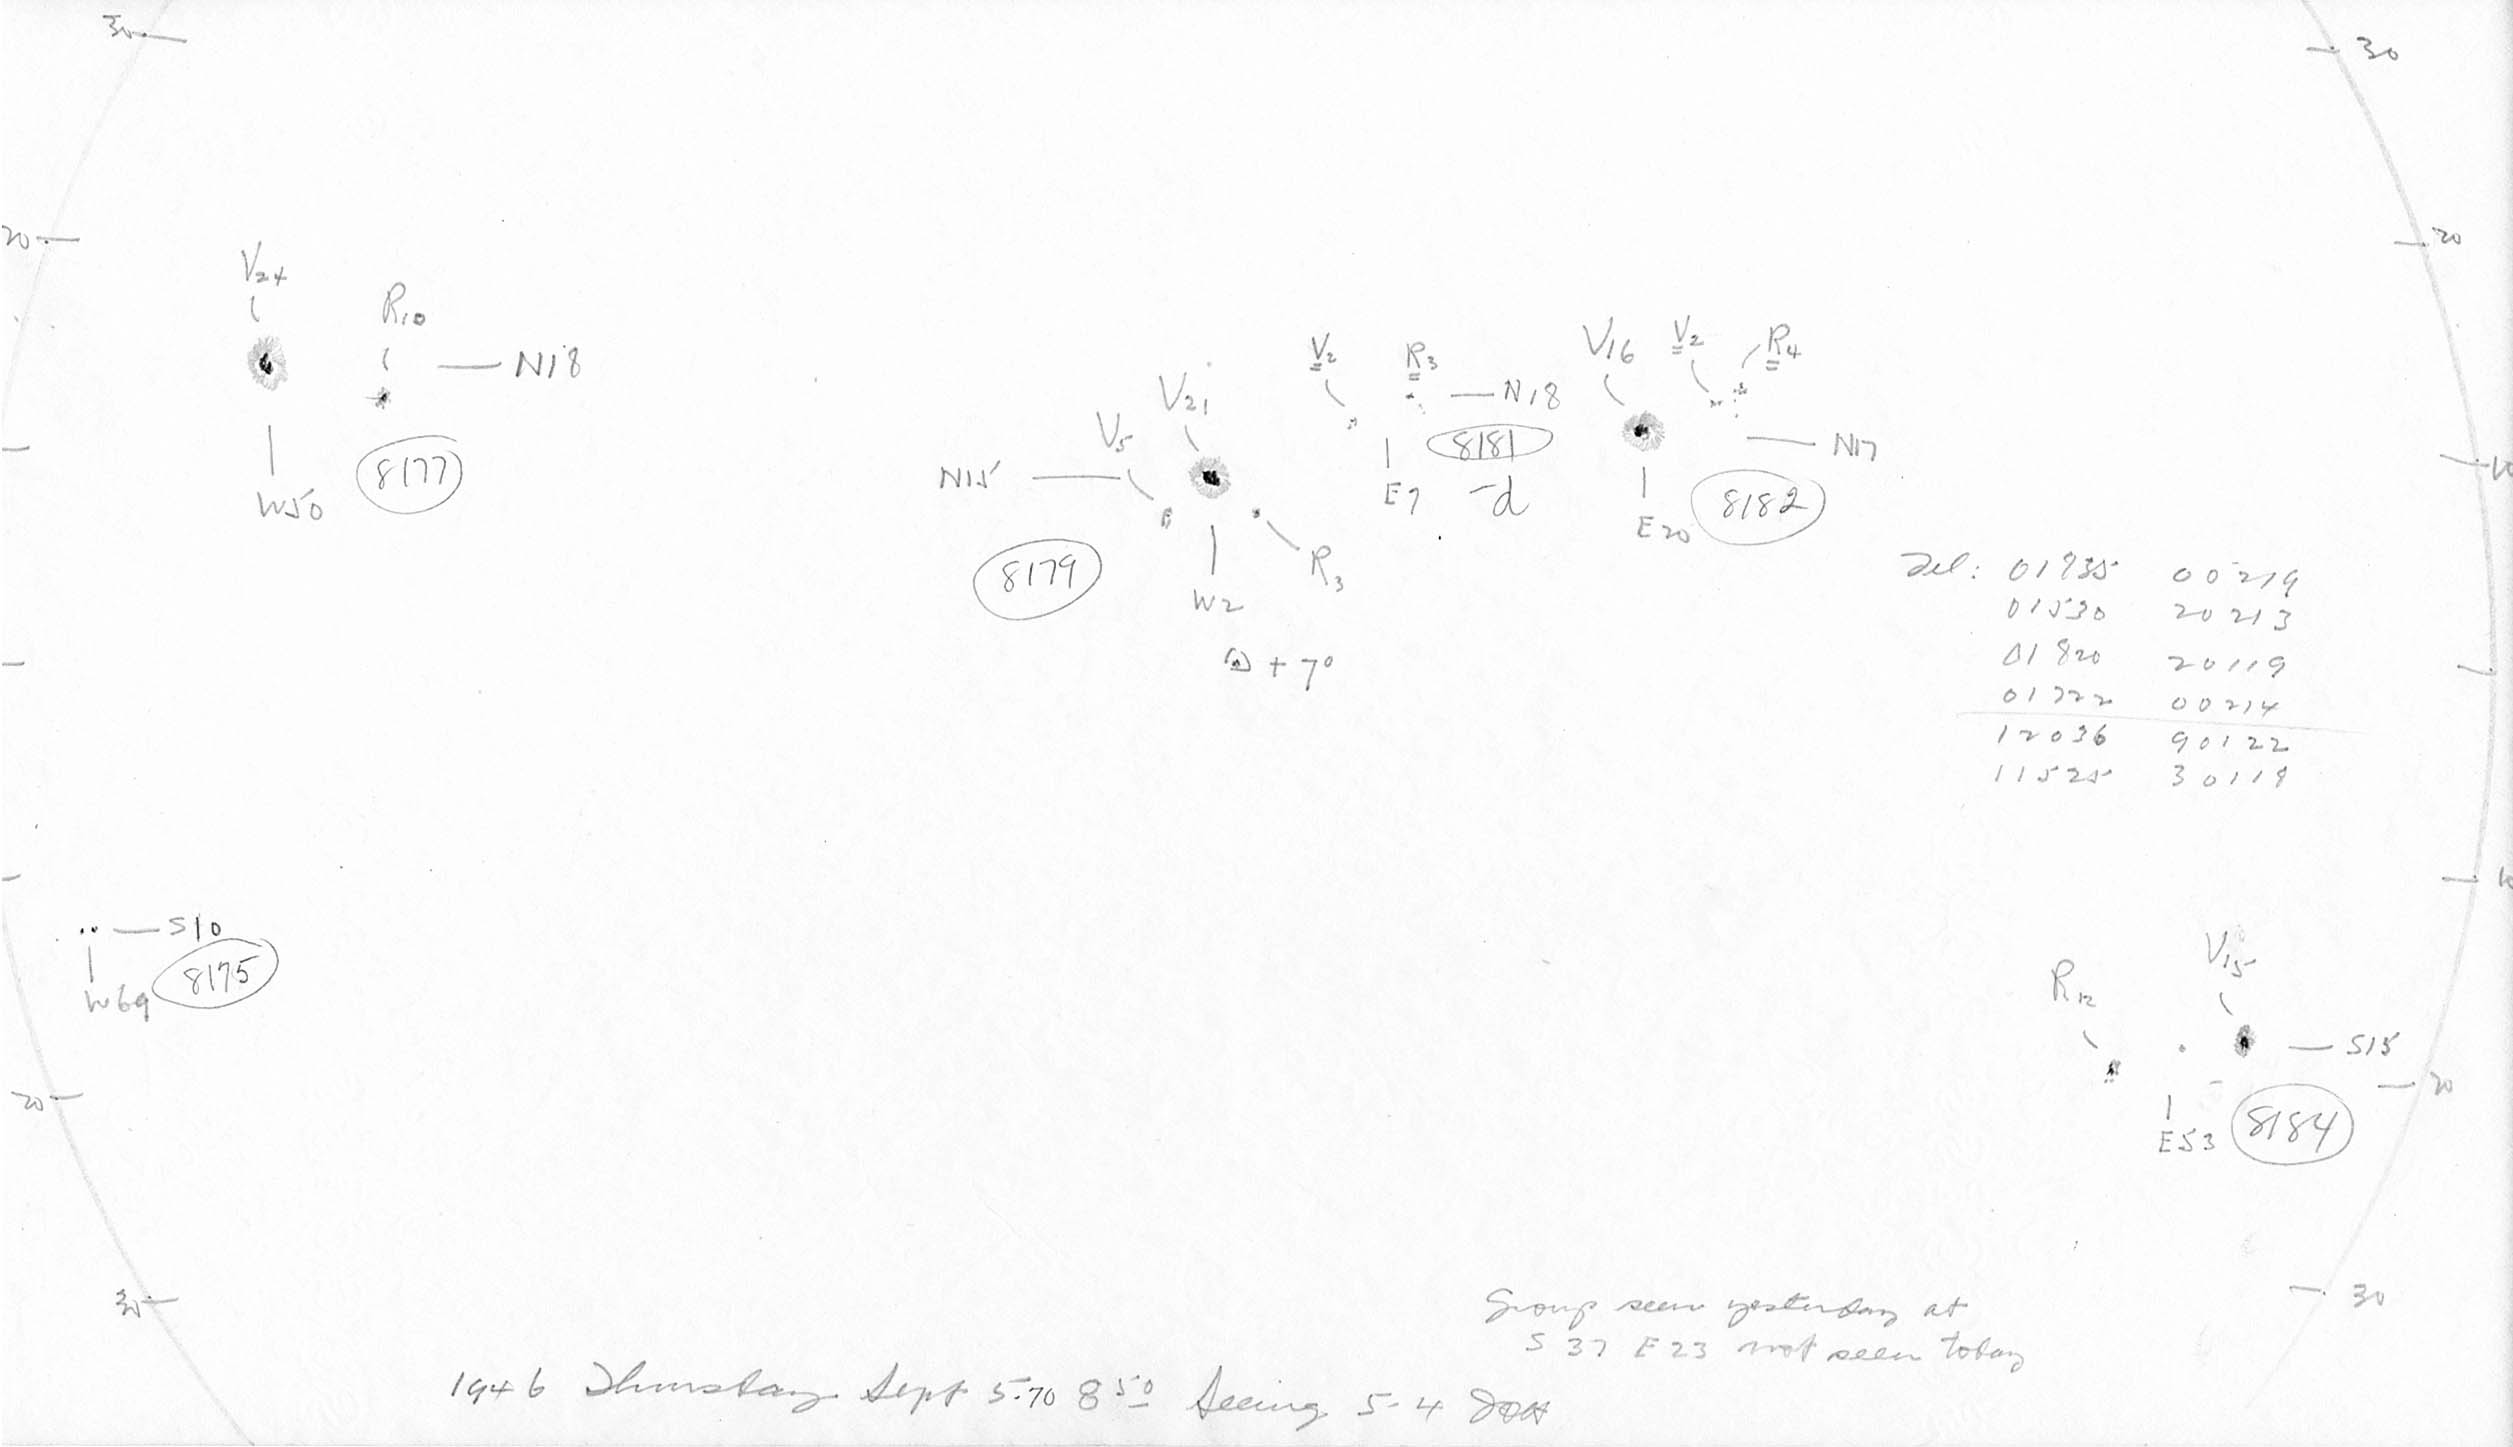 30 30
20 20
V24
R10
N18
8177
W50
V21
V5
N15
8179
W2
R3
+ 7°
V2
R3
N18
8181
E7 -d
V16 V2 R4
N17
8182
E20
10
00219
01530 20213
01820 20119
01722 00214
12036 90122
11525 30119
S10
8175
W69
V15
R12
S15
E53 8184
20 20
30 30
Group seen yesterday at
S 37 E 23 not seen today
1946 Thursday Sept 5.70 8 50 Seeing 5-4